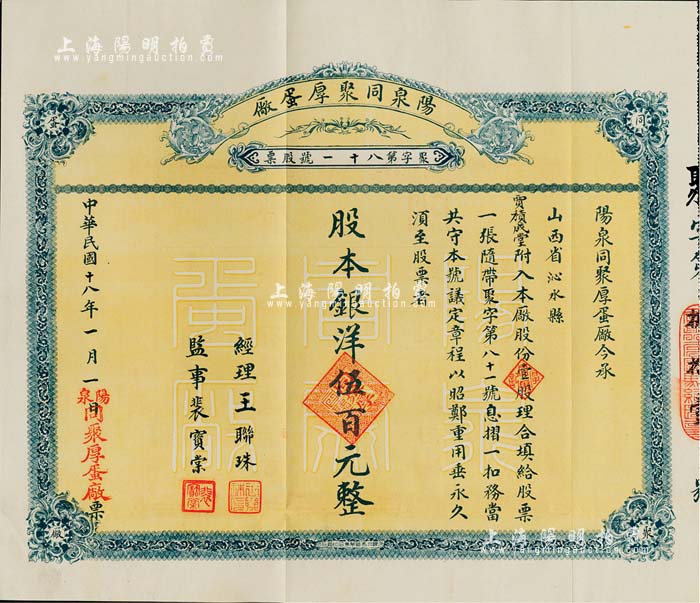 上海陽明拍賣
www.yangmingauction.com
上海陽明拍賣
www.yangmingauction.com
陽泉同聚厚蛋廠
聚字第八十一號股票
同
聚
蛋
廠
陽泉同聚厚蛋廠今承
山西省沁水縣
賈積成堂附入本廠股份壹股理合填給股票
一張隨帶聚字第八十一號息摺一扣務當
共守本號議定章程以昭鄭重用垂永久
須至股票者
股本銀洋伍百元整
經理王聯珠
監事裴寶棠
中華民國十八年一月一日
陽泉同聚厚蛋廠票
上海陽明拍賣
www.yangmingauction.com
上海陽明拍賣
www.yangmingauction.com